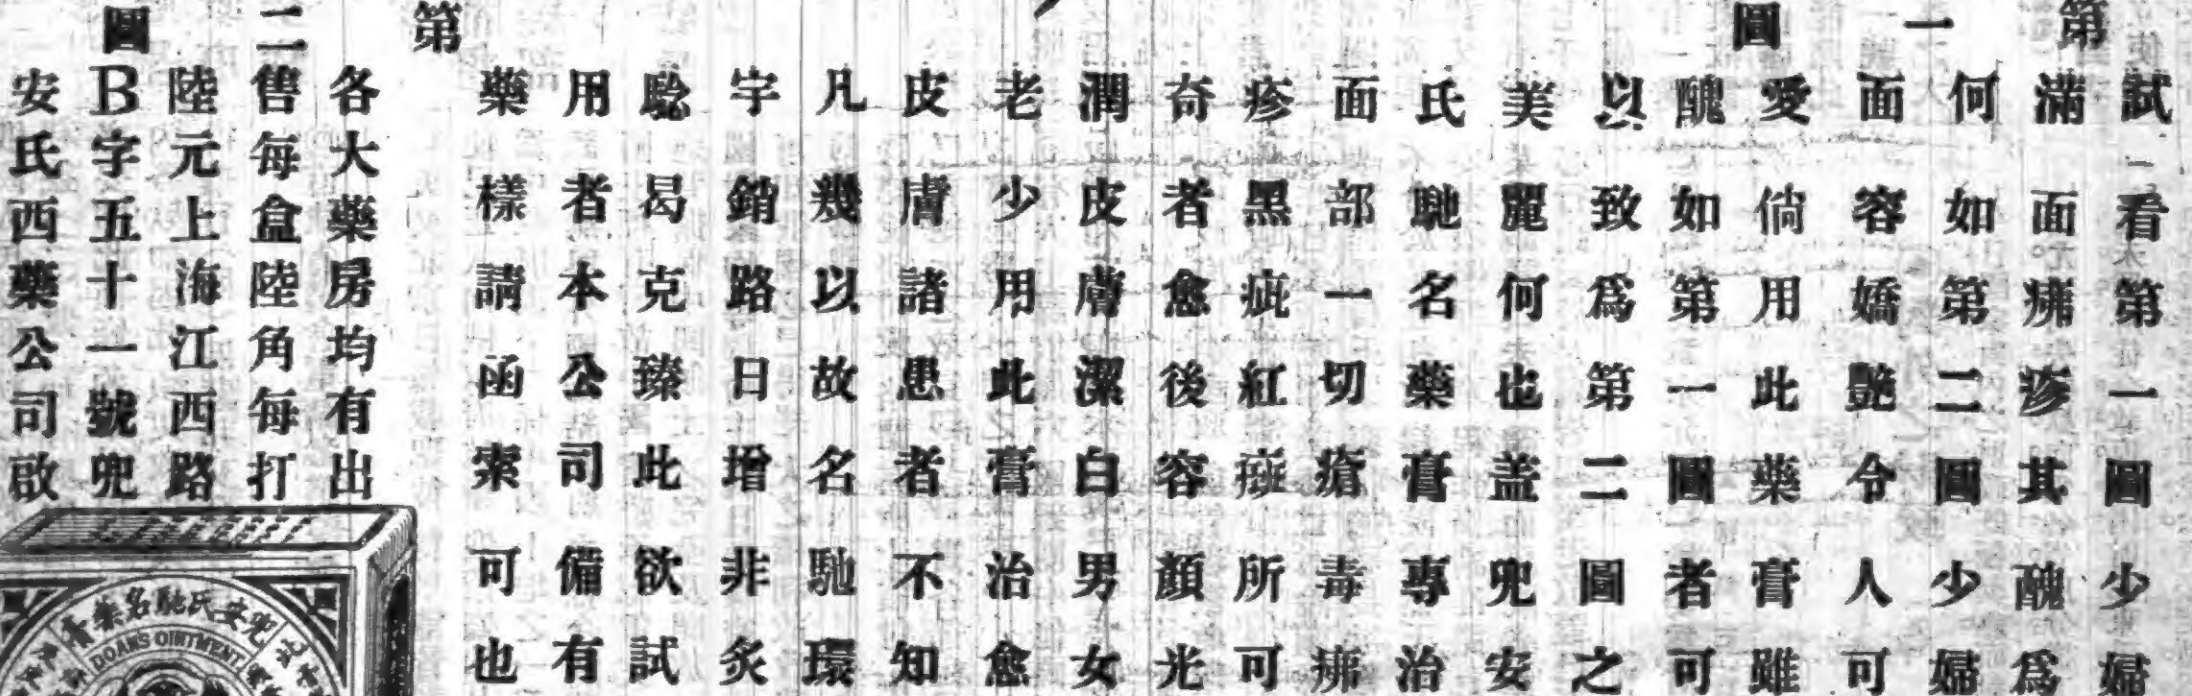 第一圖
試看第一圖少婦
滿面疿疹其醜為
何如第二圖少婦
面容嬌艷令人可
愛倘用此藥膏雖
醜如第一圖者可
以致為第二圖之
美麗何也盖兜安
氏馳名藥膏專治
面部一切瘡毒疿
疹黑疵紅痣所可
奇者愈後容顏光
潤皮膚潔白男女
老少用此膏治愈
皮膚諸患者不知
凡幾以故名馳環
宇銷路日增非
騐曷克臻此欲試
用者本公司備有
藥樣請函索可也
第二圖
各大藥房均有出
售每盒陸角每打
陸元上海江西路
B字五十一號兜
安氏西藥公司啟
兜安氏馳名藥膏
DOAN'S OINTMENT